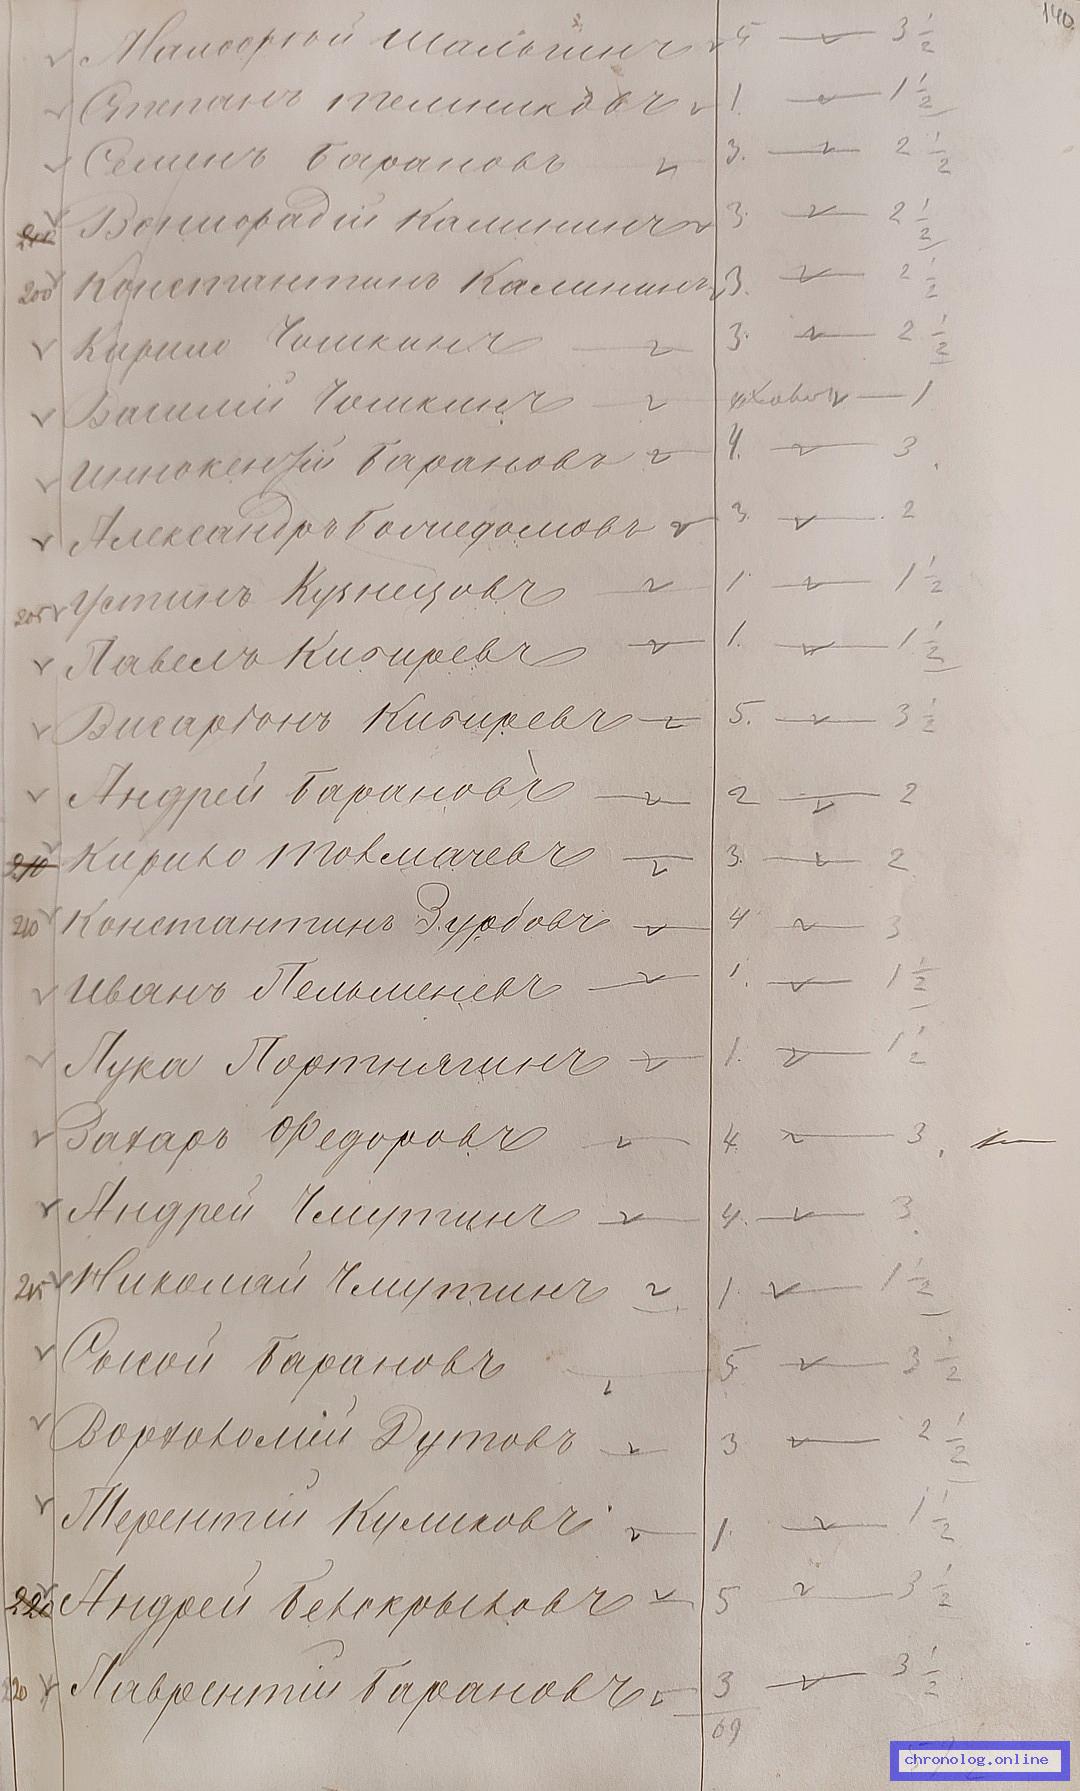 140
Шалыгинъ 5 3 1/2
Степанъ Телминовъ 1. 1 1/2
Семинъ Барановъ 3. 2 1/2
Калининъ 3. 2 1/2
200 Константинъ Калининъ 3. 2 1/2
Кирило Чошкинъ 3. 2 1/2
Василий Чошкинъ 1
Инокентий Барановъ 4. 3
Александръ 3. 2
205 Устинъ Кузнецовъ 1. 1 1/2
Павелъ Кибиревъ 1. 1 1/2
Висарионъ Кибиревъ 5. 3 1/2
Андрей Барановъ 2 2
210 Кирило Товмачевъ 3. 2
210 Константинъ Зурбовъ 4 3
Иванъ Пельменевъ 1. 1 1/2
Лука Портнягинъ 1. 1 1/2
Захаръ Федоровъ 4. 3
Андрей Чмутинъ 4. 3
215 Николай Чмутинъ 1. 1 1/2
Сысой Барановъ 5 3 1/2
Дутовъ 3 2 1/2
Терентий Куликовъ 1. 1 1/2
220 Андрей Бескрыловъ 5 3 1/2
220 Лаврентий Барановъ 3 3 1/2
69
chronolog.online